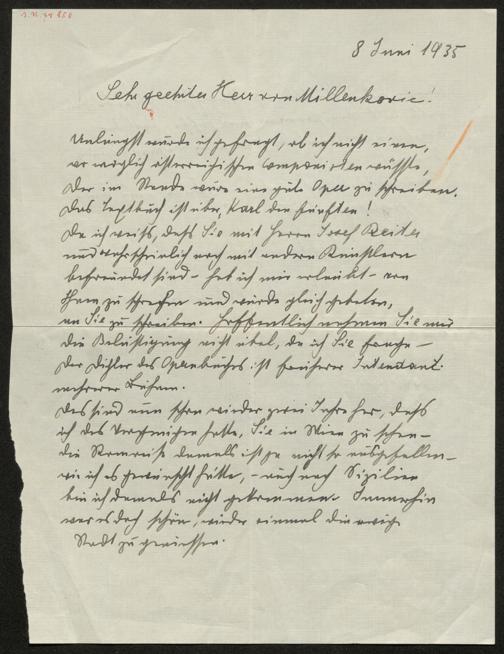 8 Juni 1935
Sehr geehrter Herr von Millenkovic!
Unlängst wurde ich gefragt, ob ich nicht einen,
wo möglich österreichischen Componisten wüsste,
der im Stande wäre eine gute Oper zu schreiben.
Das Textbuch ist über, Karl den fünften!
Da ich weiss, dass Sie mit Herrn Josef Reiter
und wahrscheinlich noch mit andern Künstlern
befreundet sind – hab ich mir erlaubt – von
Ihnen zu sprechen und wurde gleich gebeten,
an Sie zu schreiben. Hoffentlich nehmen Sie mir
die Belästigung nicht übel, da ich Sie frage –
Der Dichter des Opernbuches ist früherer Intendant
mehrerer Bühnen.
Das sind nun schon wieder zwei Jahre her, dass
ich das Vergnügen hatte, Sie in Wien zu sehen –
die Romreise damals ist ja nicht so ausgefallen –
wie ich es gewünscht hätte, – auch nach Sizilien
bin ich damals nicht gekommen. Immerhin
war es doch schön, wieder einmal die ewige
Stadt zu geniessen.